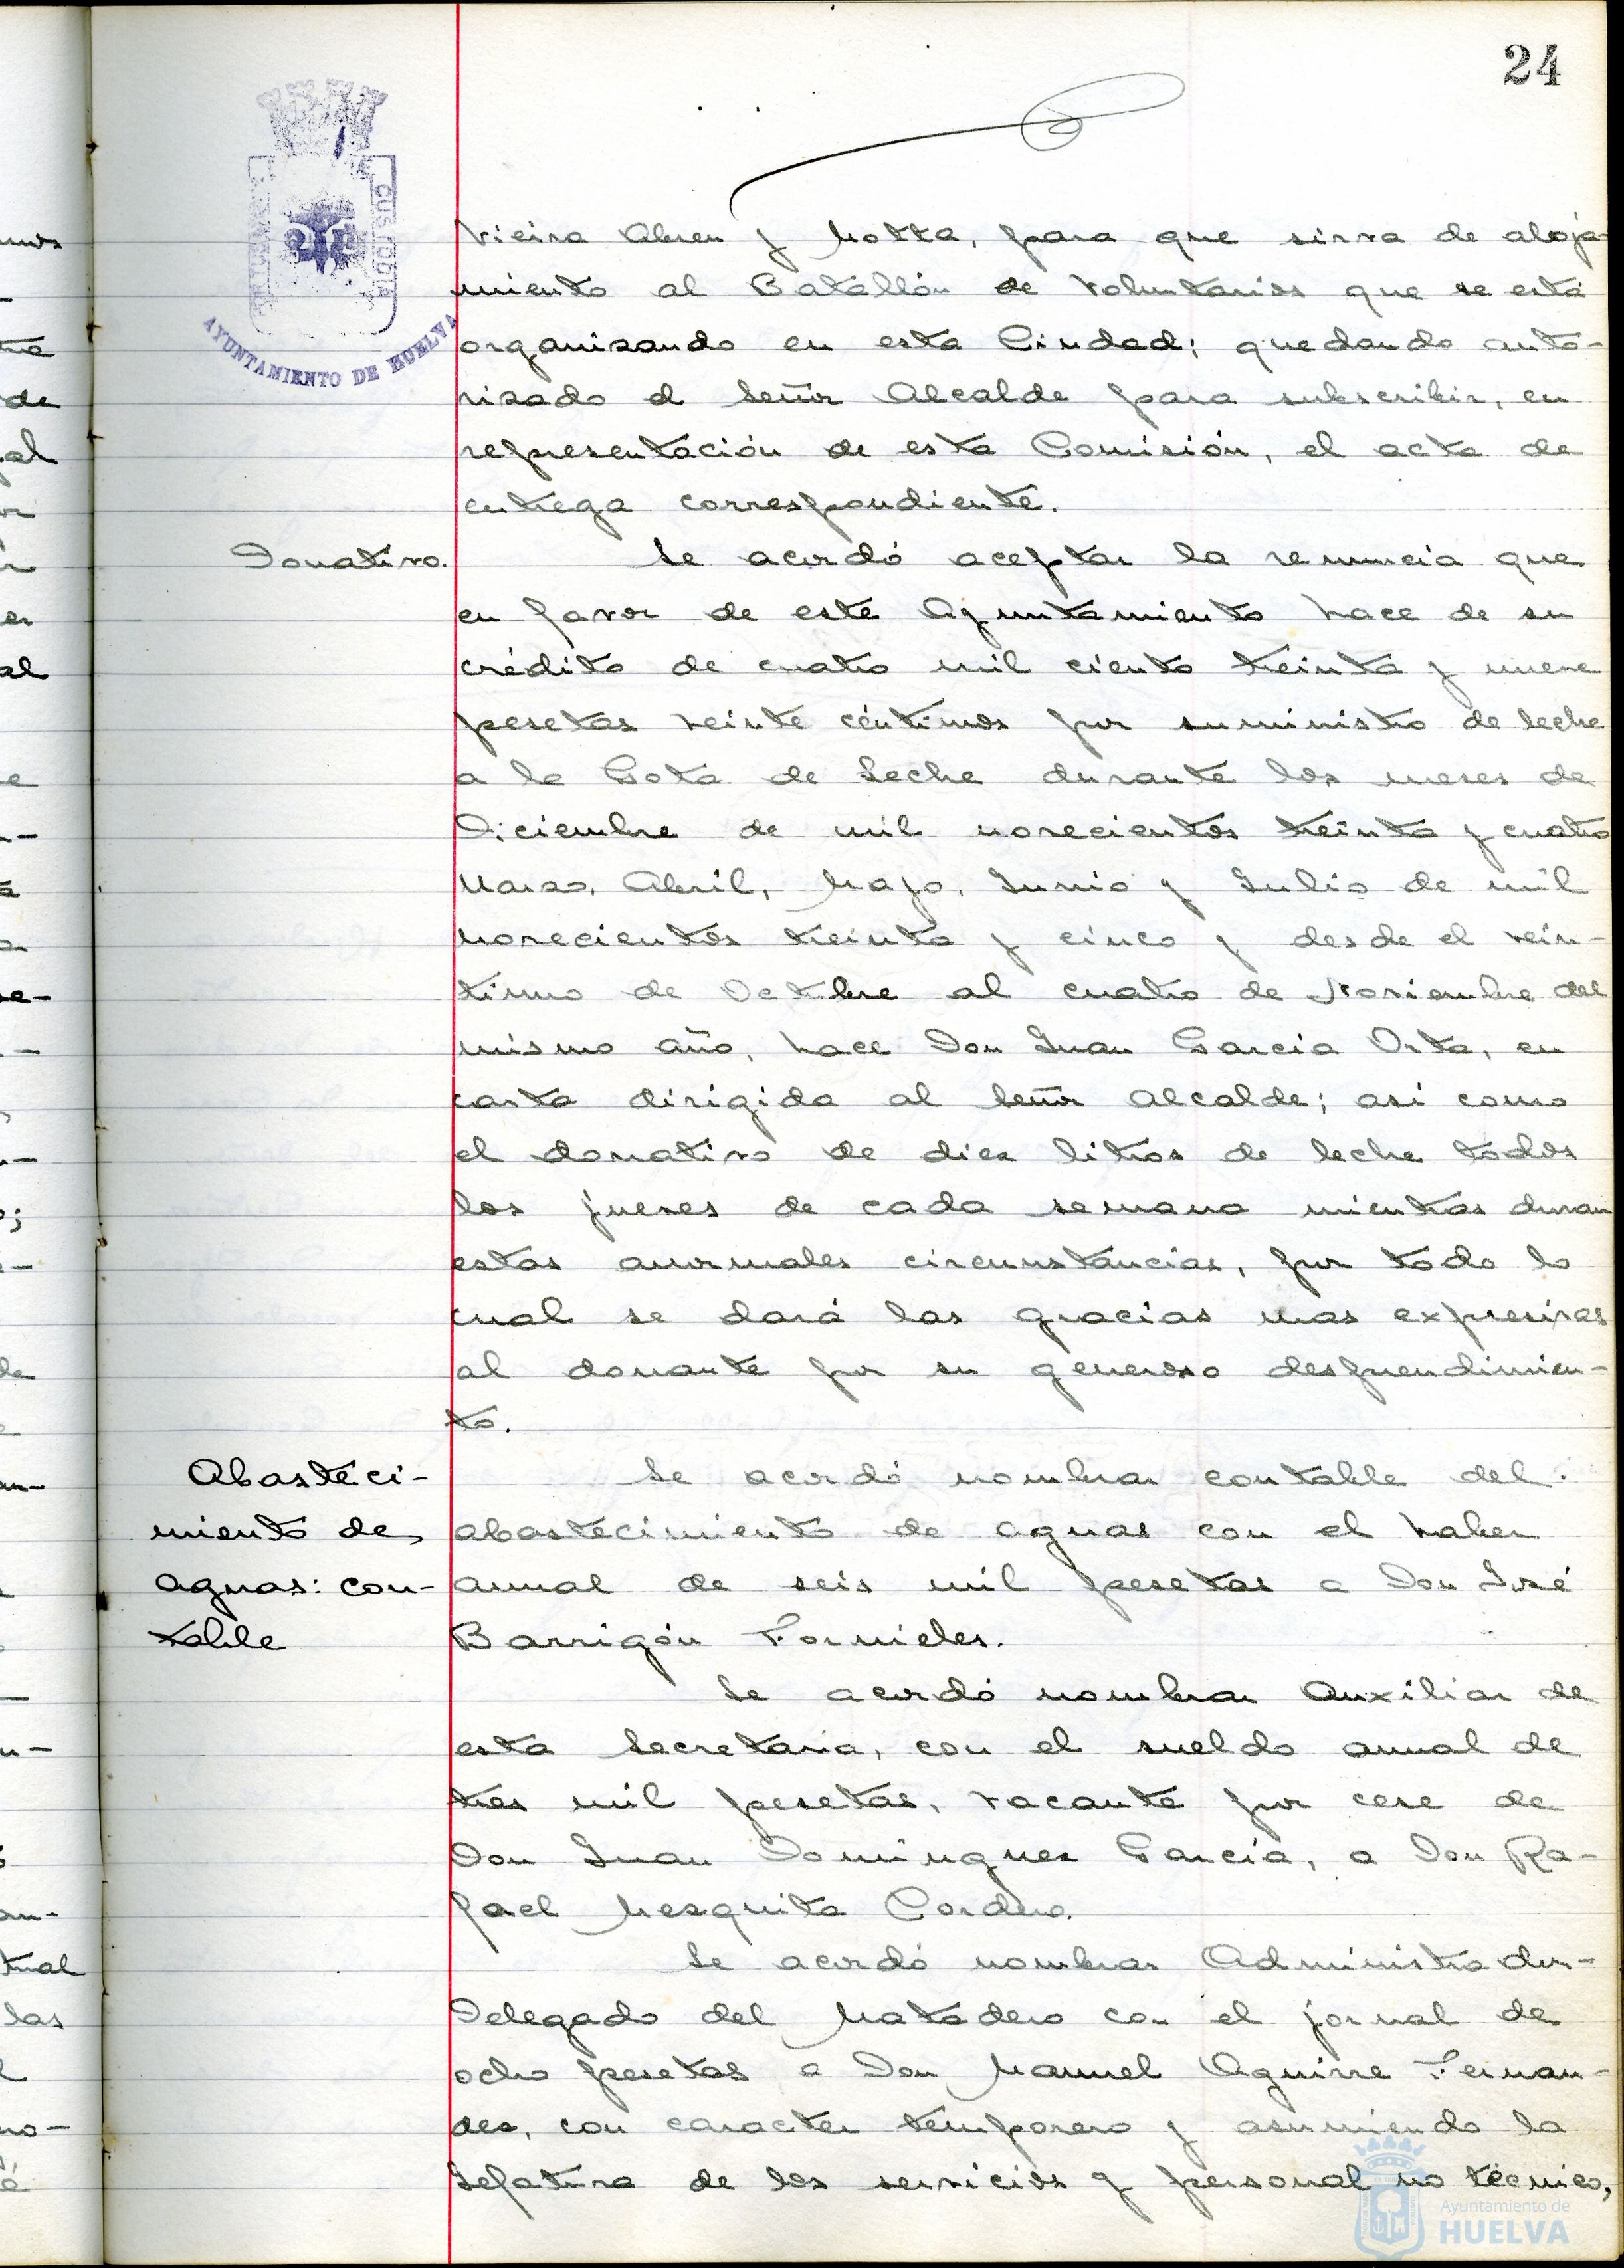 24
AYUNTAMIENTO DE HUELVA
CUSTODIA
Vieira Abreu y Motta, para que sirva de aloja-
miento al Batallón de Voluntarios que se está
organizando en esta Ciudad; quedando auto-
rizado el Señor Alcalde para subscribir, en
representación de esta Comisión, el acta de
entrega correspondiente.
Donativo.
Se acordó aceptar la renuncia que
en favor de este Ayuntamiento hace de su
crédito de cuatro mil ciento treinta y nueve
pesetas veinte céntimos por suministro de leche
a la Gota de Leche durante los meses de
Diciembre de mil novecientos treinta y cuatro
Marzo, Abril, Mayo, Junio y Julio de mil
novecientos treinta y cinco y desde el vein-
tiuno de Octubre al cuatro de Noviembre del
mismo año, hace Don Juan Garcia Orta, en
carta dirigida al Señor Alcalde; asi como
el donativo de diez litros de leche todos
los jueves de cada semana mientras duran
estas anormales circunstancias, por todo lo
cual se dará las gracias mas expresivas
al donante por su generoso desprendimien-
to.
Abasteci-
miento de
aguas: con-
table
Se acordó nombrar contable del
abastecimiento de aguas con el haber
anual de seis mil pesetas a Don José
Barrigón Fornieles.
Se acordó nombrar Auxiliar de
esta Secretaria, con el sueldo anual de
tres mil pesetas, vacante por cese de
Don Juan Dominguez Garcia, a Don Ra-
fael Mezquita Cordero.
Se acordó nombrar Administrador-
Delegado del Matadero con el jornal de
ocho pesetas a Don Manuel Aguirre Fernan-
dez, con caracter temporero y asumiendo la
Jefatura de los servicios y personal no técnico,
Ayuntamiento de
HUELVA